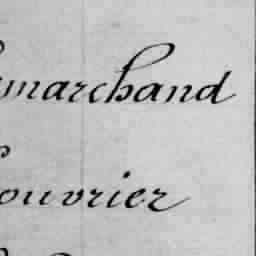 marchand
ouvrier